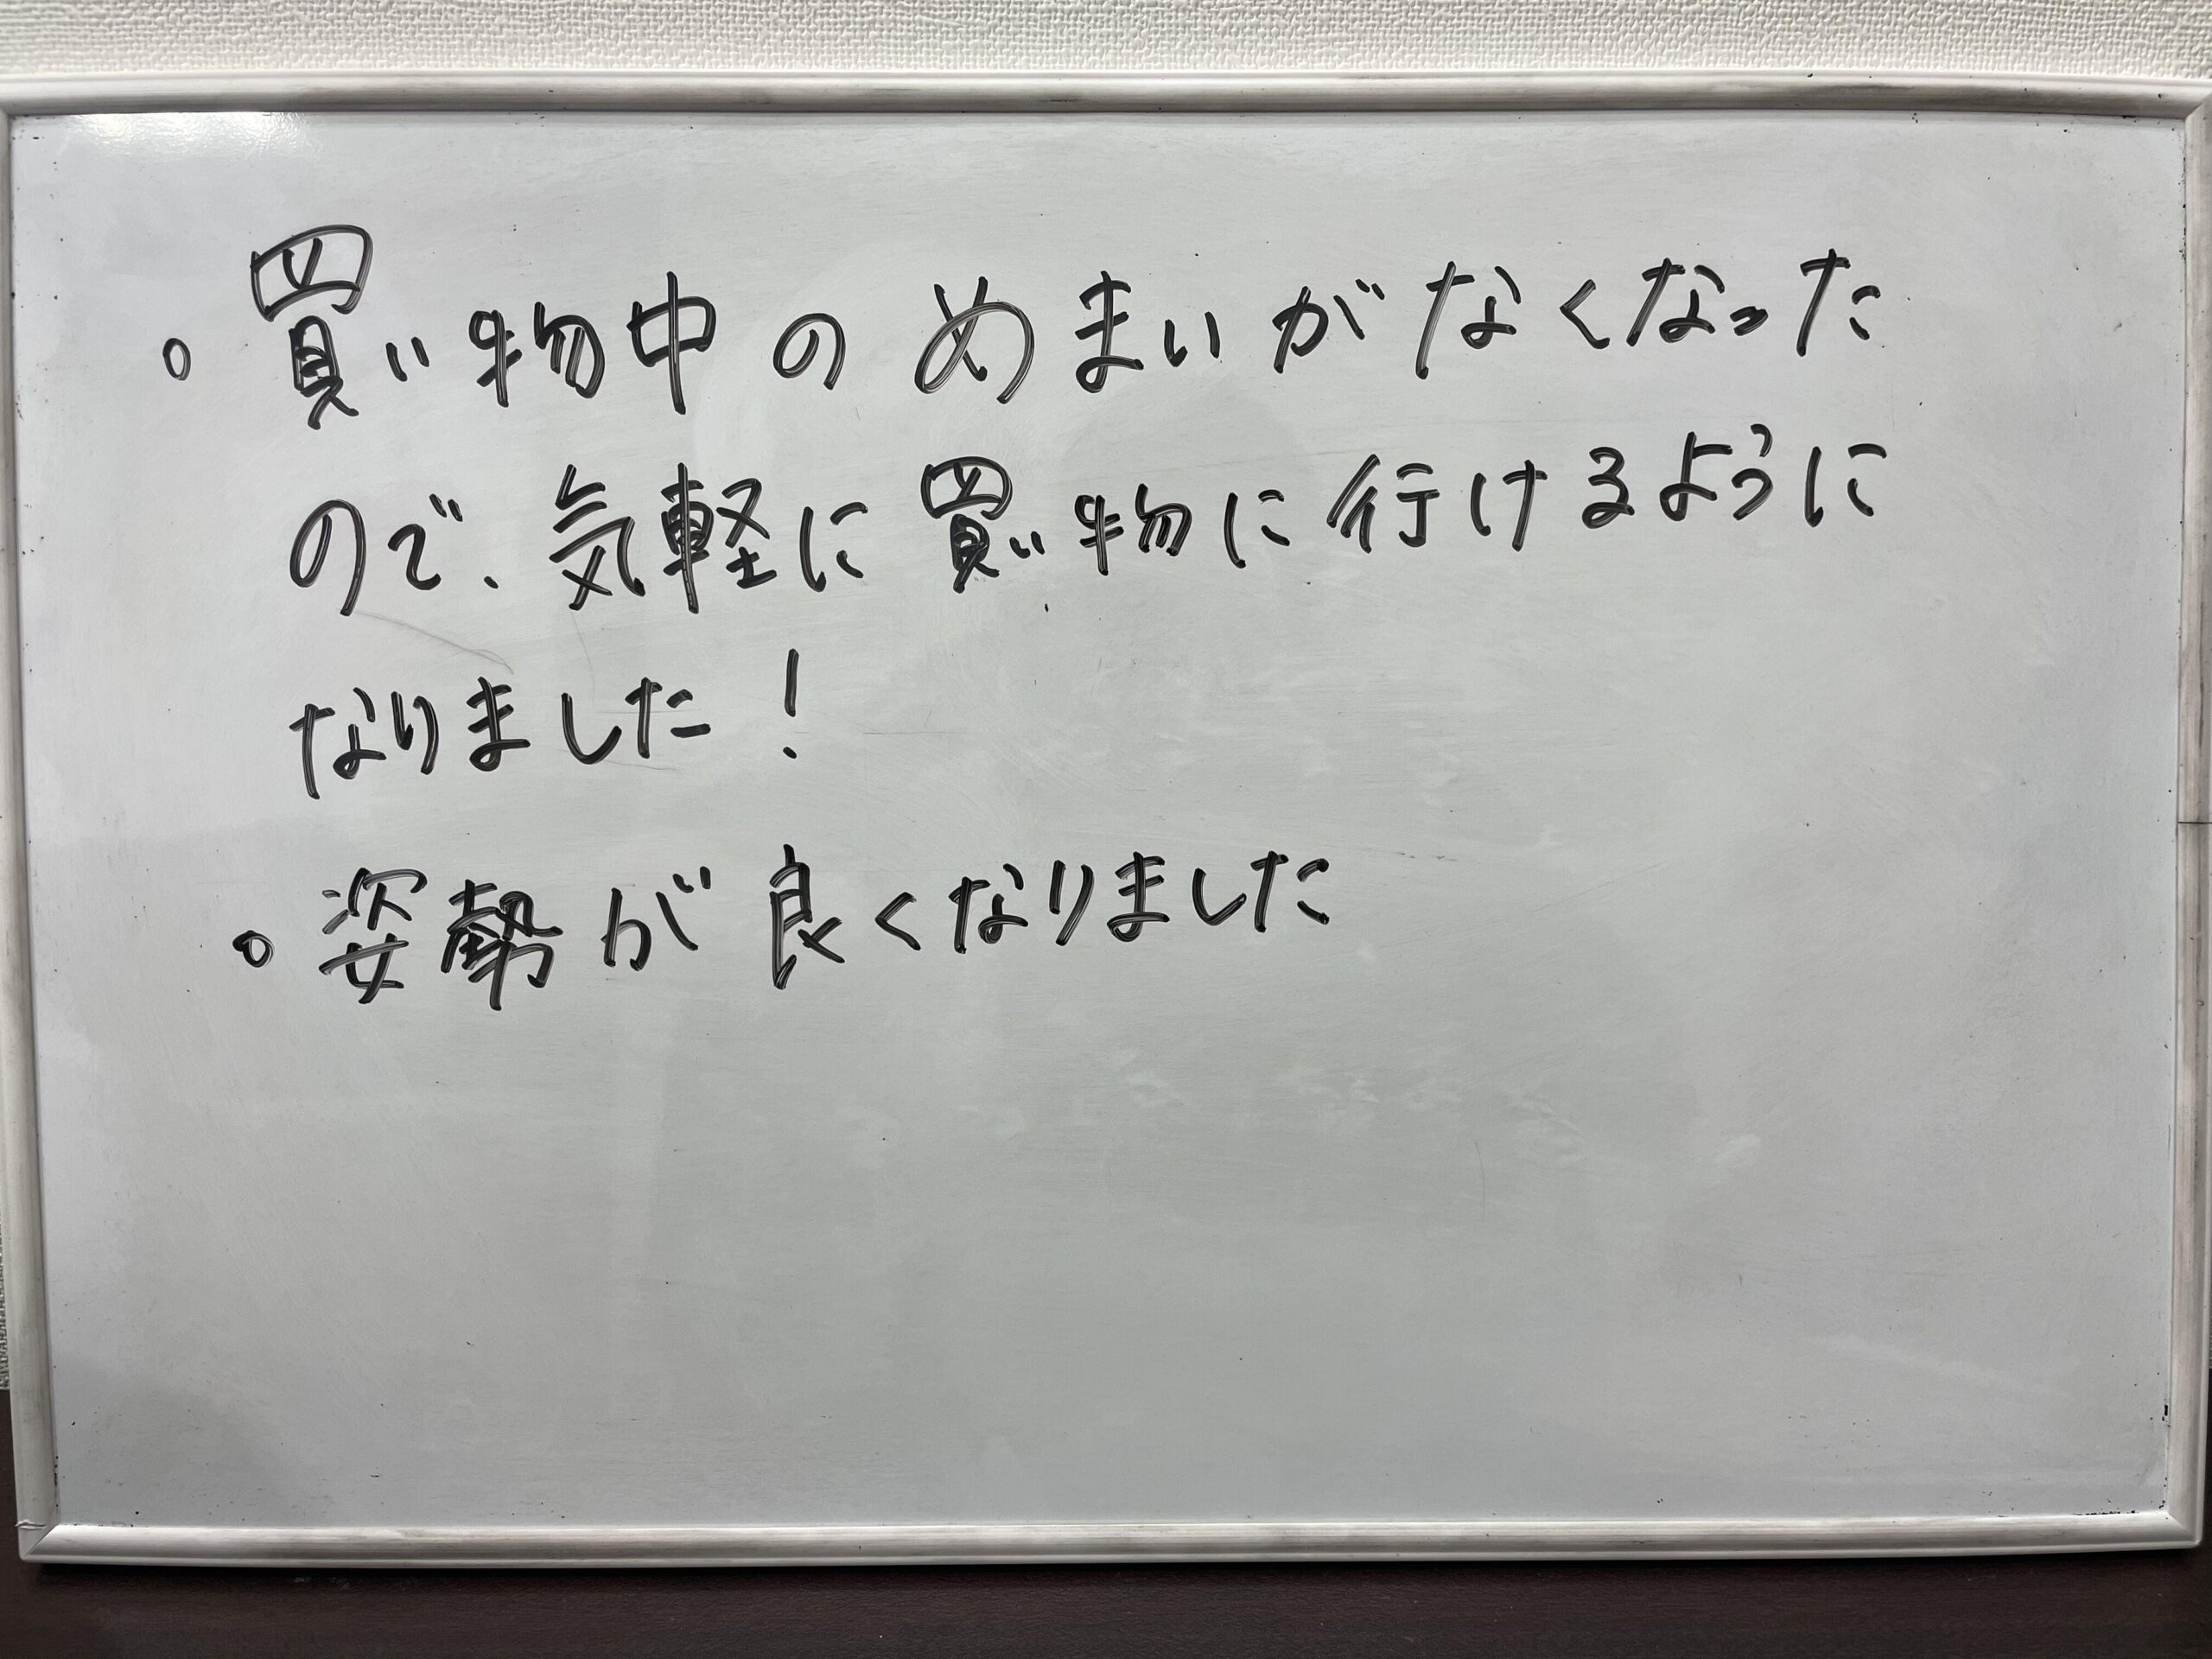 。買い物中のめまいがなくなった
ので、気軽に買い物に行けるように
なりました！
。姿勢が良くなりました